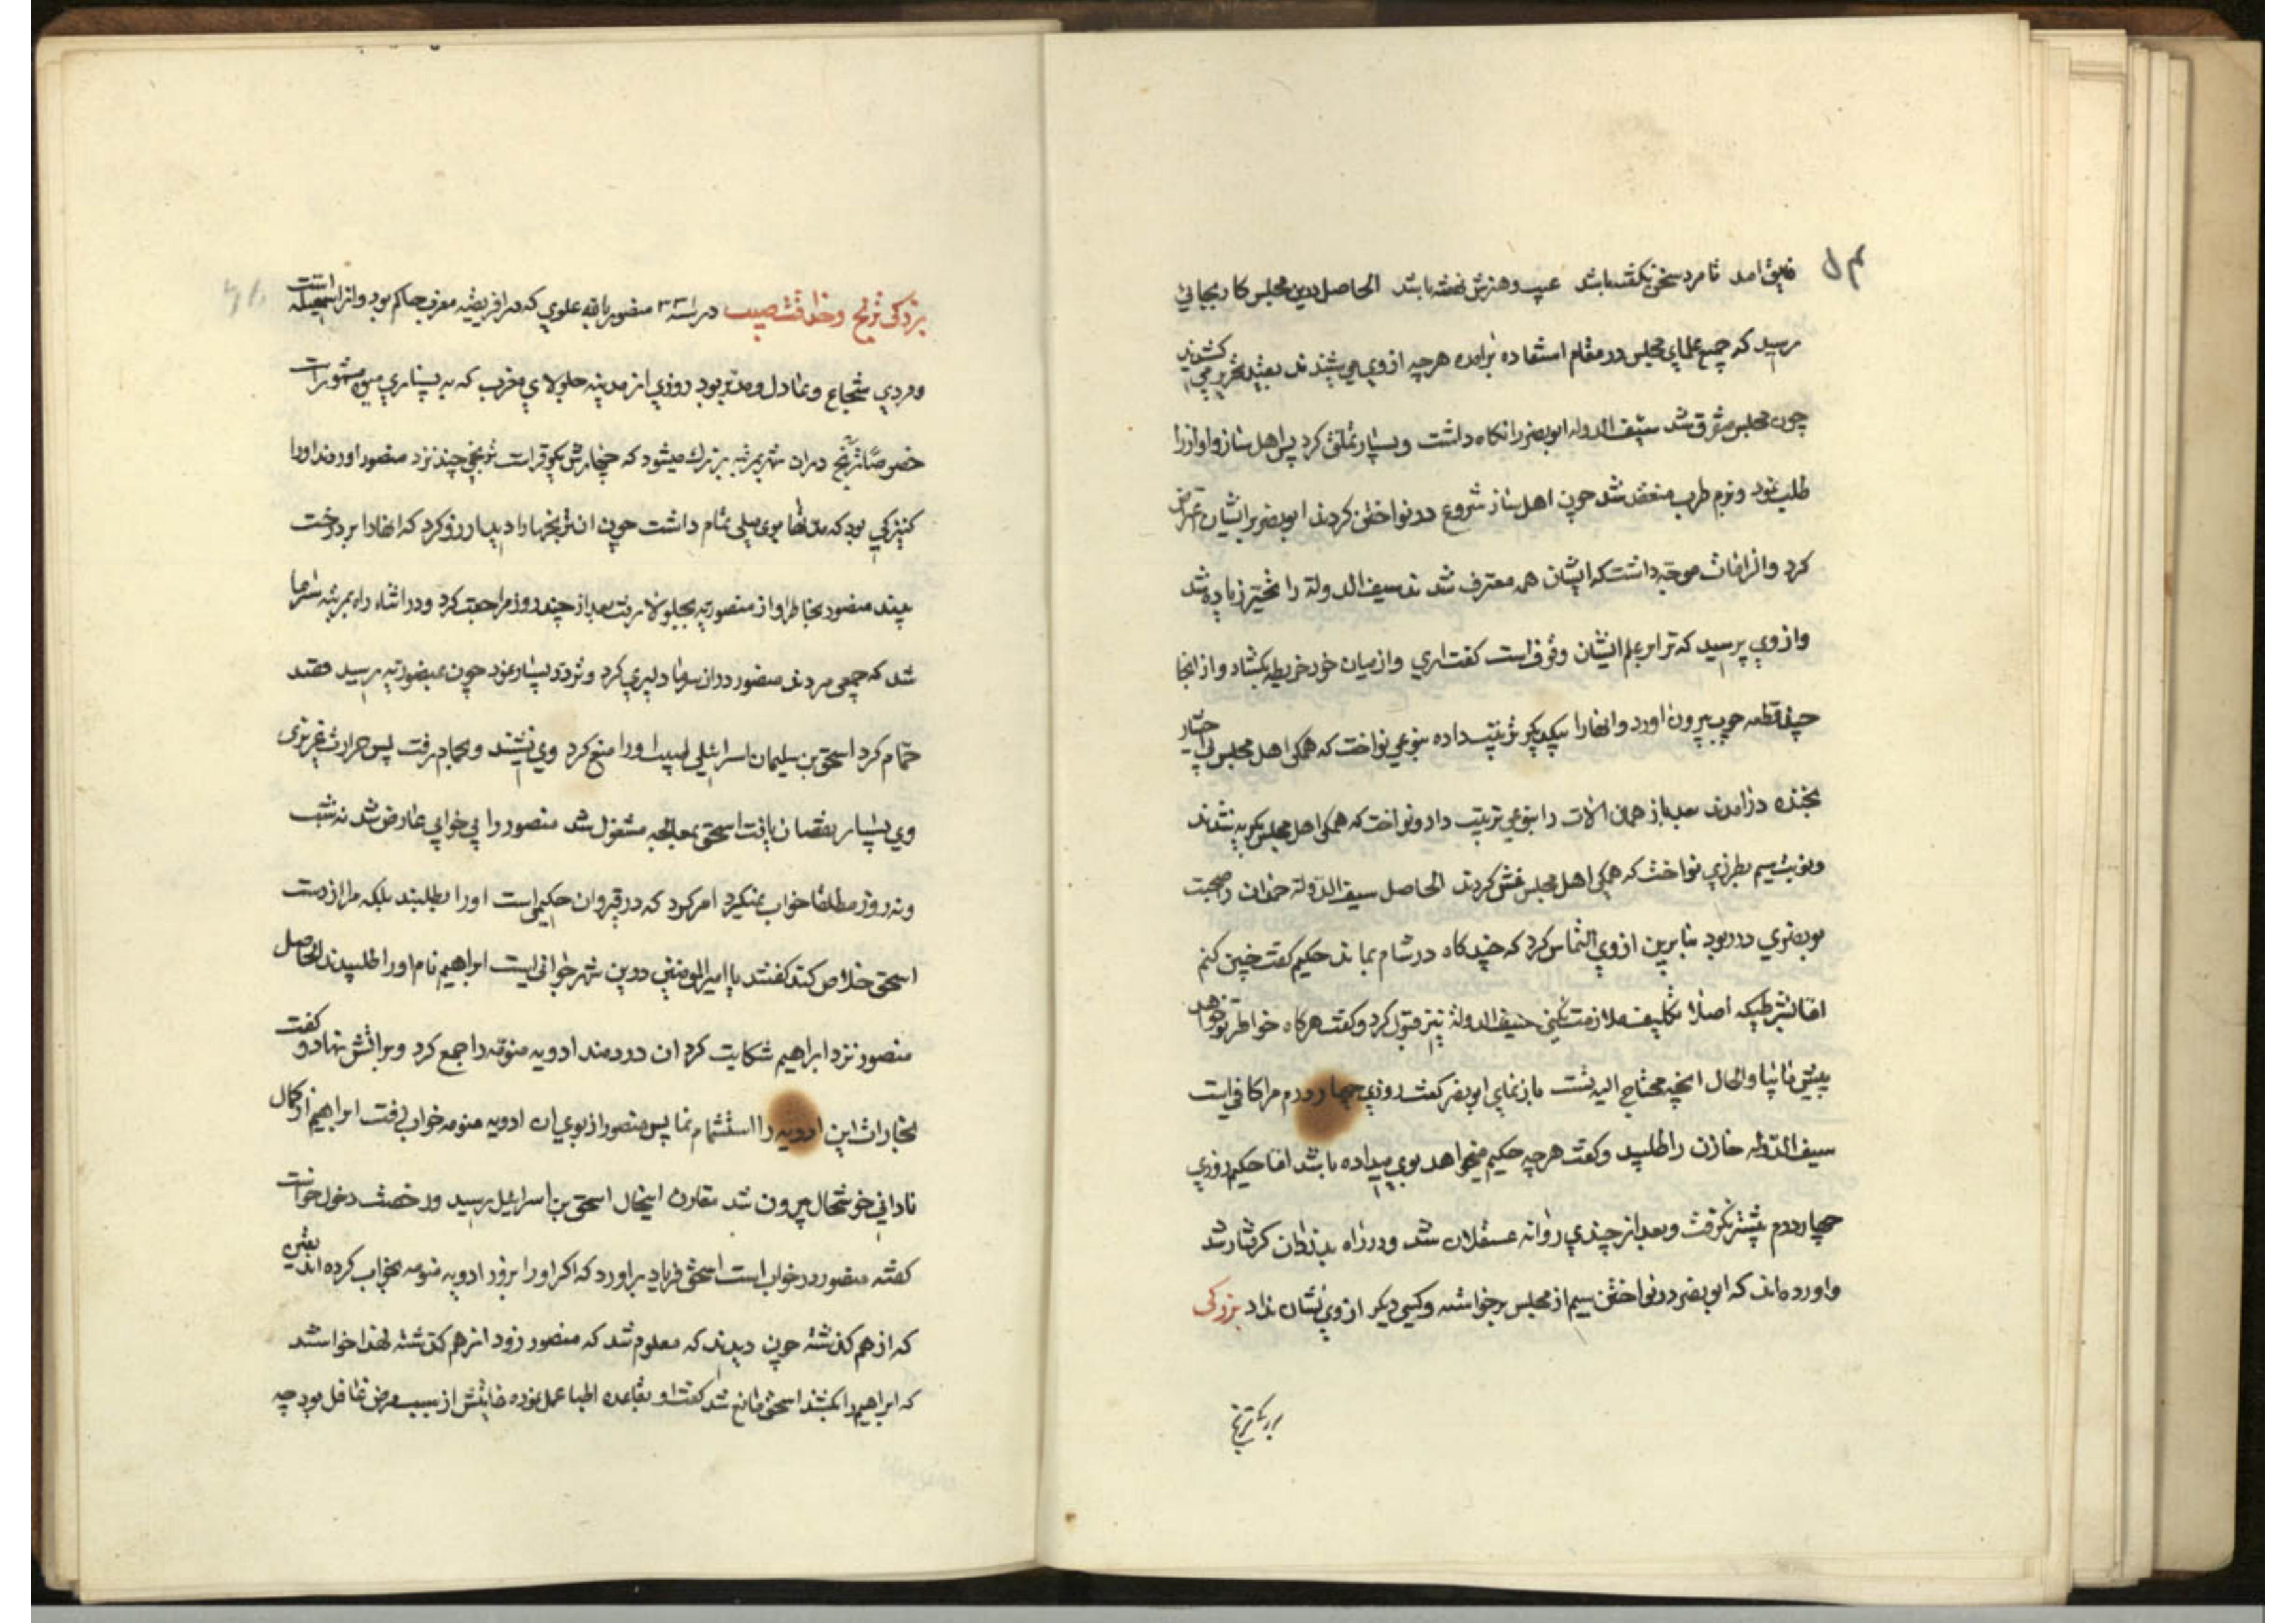 فایق امد تا مرد سخن نکفته باشد عیب و هنرش نهفته باشد الحاصل درین مجلس کار بجائی
رسید که جمیع علمای مجلس در مقام استفاده برامده هرچه از وی می شنیدند بقید تحریر می کشیدند
چون مجلس متفرق شد سیف الدوله ابونصر را نکاه داشت و بسیار تملق کرد پس اهل ساز و اواز را
طلب نمود و بزم طرب منعقد شد چون اهل ساز شروع در نواختن کردند ابونصر بر ایشان اعتراض
کرد و الزامات موجه داشت که ایشان همه معترف شدند سیف الدولة را تحیر زیاده شد
و از وی پرسید که ترا بر علم ایشان وقوف است کفت اری و از میان خود خریطه بکشاد و از انجا
چند قطعه چوب بیرون اورد و انها را بیکدیکر ترتیب داده بنوعی نواخت که همکی اهل مجلس بی اختیار
بخنده درامدند بعد از همان الات را بنوعی ترتیب داد و نواخت که همکی اهل مجلس بکریه شدند
و نوبت سیم بطرزی نواخت که همکی اهل مجلس غش کردند الحاصل سیف الدولة حمدان را صحبت
بونصری در ربود بنابرین از وی التماس کرد که چند کاه در شام بماند حکیم کفت چنین کنم
اما بشرطیکه اصلا تکلیف ملازمت نکنی سیف الدولة نیز قبول کرد و کفت هرکاه خواطر تو خواهد
پیش ما بیا والحال انچه محتاج الیه تست باز نمای ابونصر کفت روزی چهار درم مرا کافی است
سیف الدوله خازن را طلبید و کفت هرچه حکیم میخواهد بوی میداده باشد اما حکیم روزی
چهار درم بیشتر نکرفت و بعد از چندی روانه عسقلان شد و در راه بدزدان کرفتار شد
و اورده اند که ابونصر در نواختن سیم از مجلس برخواسته و کسی دیکر از وی نشان نداد بزرکی
بزرکی ترنج
بزرکی ترنج و خذاقت طبیب در سنه ۳۳ منصور بالله علوی که در افریقیه مغرب حاکم بود و از اسمعیله است
و مردی شجاع و عادل و مدبر بود روزی از مدینه جلولای مغرب که به بسیاری میوه مشهور است
خصوصا ترنج در ان شهر بمرتبه بزرک میشود که چهارش یکوقر است ترنجی چند نزد منصور اوردند او را
کنیزکی بود که منصور را بوی میلی تمام داشت چون ان ترنجها را دید ارزو کرد که انها را بر درخت
بیند منصور بخاطر او از منصوریه بجلولا رفت بعد از چند روز مراجعت کرد و در اثناء راه بمرتبه سرما
شد که جمعی مردند منصور در ان سرما دلیری کرد و تردد بسیار نمود چون بمنصوریه رسید قصد
حمام کرد اسحق بن سلیمان اسرائیلی طبیب او را منع کرد وی نشنید و بحمام رفت پس حرارت غریزی
وی بسیار نقصان یافت اسحق بمعالجه مشغول شد منصور را بی خوابی عارض شد نه شب
و نه روز مطلقا خواب نمیکرد امر کرد که در قیروان حکیمی است او را بطلبند بلکه مرا از دست
اسحق خلاص کند کفتند یا امیرالمومنین درین شهر جوانی است ابراهیم نام او را طلبیدند الحاصل
منصور نزد ابراهیم شکایت کرد ان دردمند ادویه منومه را جمع کرد و بر اتش نهاد و کفت
بخارات این ادویه را استشمام نما پس منصور از بوی ان ادویه منومه خواب رفت ابراهیم از کمال
نادانی خوشحال بیرون شد مقارن اینحال اسحق بن اسرائیل رسید و رخصت دخول خواست
کفتند منصور در خواب است اسحق فریاد براورد که اکر او را بزور ادویه منومه بخواب کرده اند یقین
که از هم کذشته چون دیدند که معلوم شد که منصور زود از هم کذشته لهذا خواستند
که ابراهیم را بکشند اسحق مانع شد کفت او بقاعده اطبا عمل نموده غایتش از سبب مرض غافل بود چه